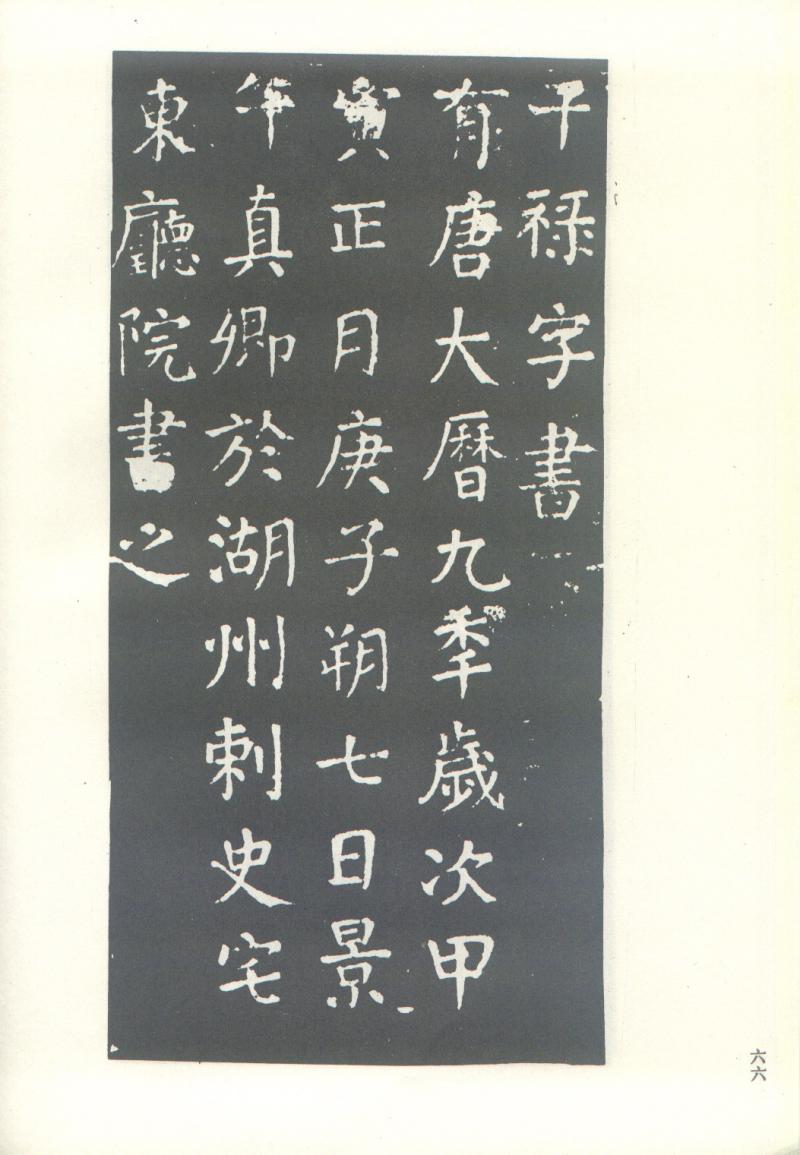 干祿字書
有唐大曆九秊歲次甲
寅正月庚子朔七日景
午真卿於湖州刺史宅
東廳院書之
六六